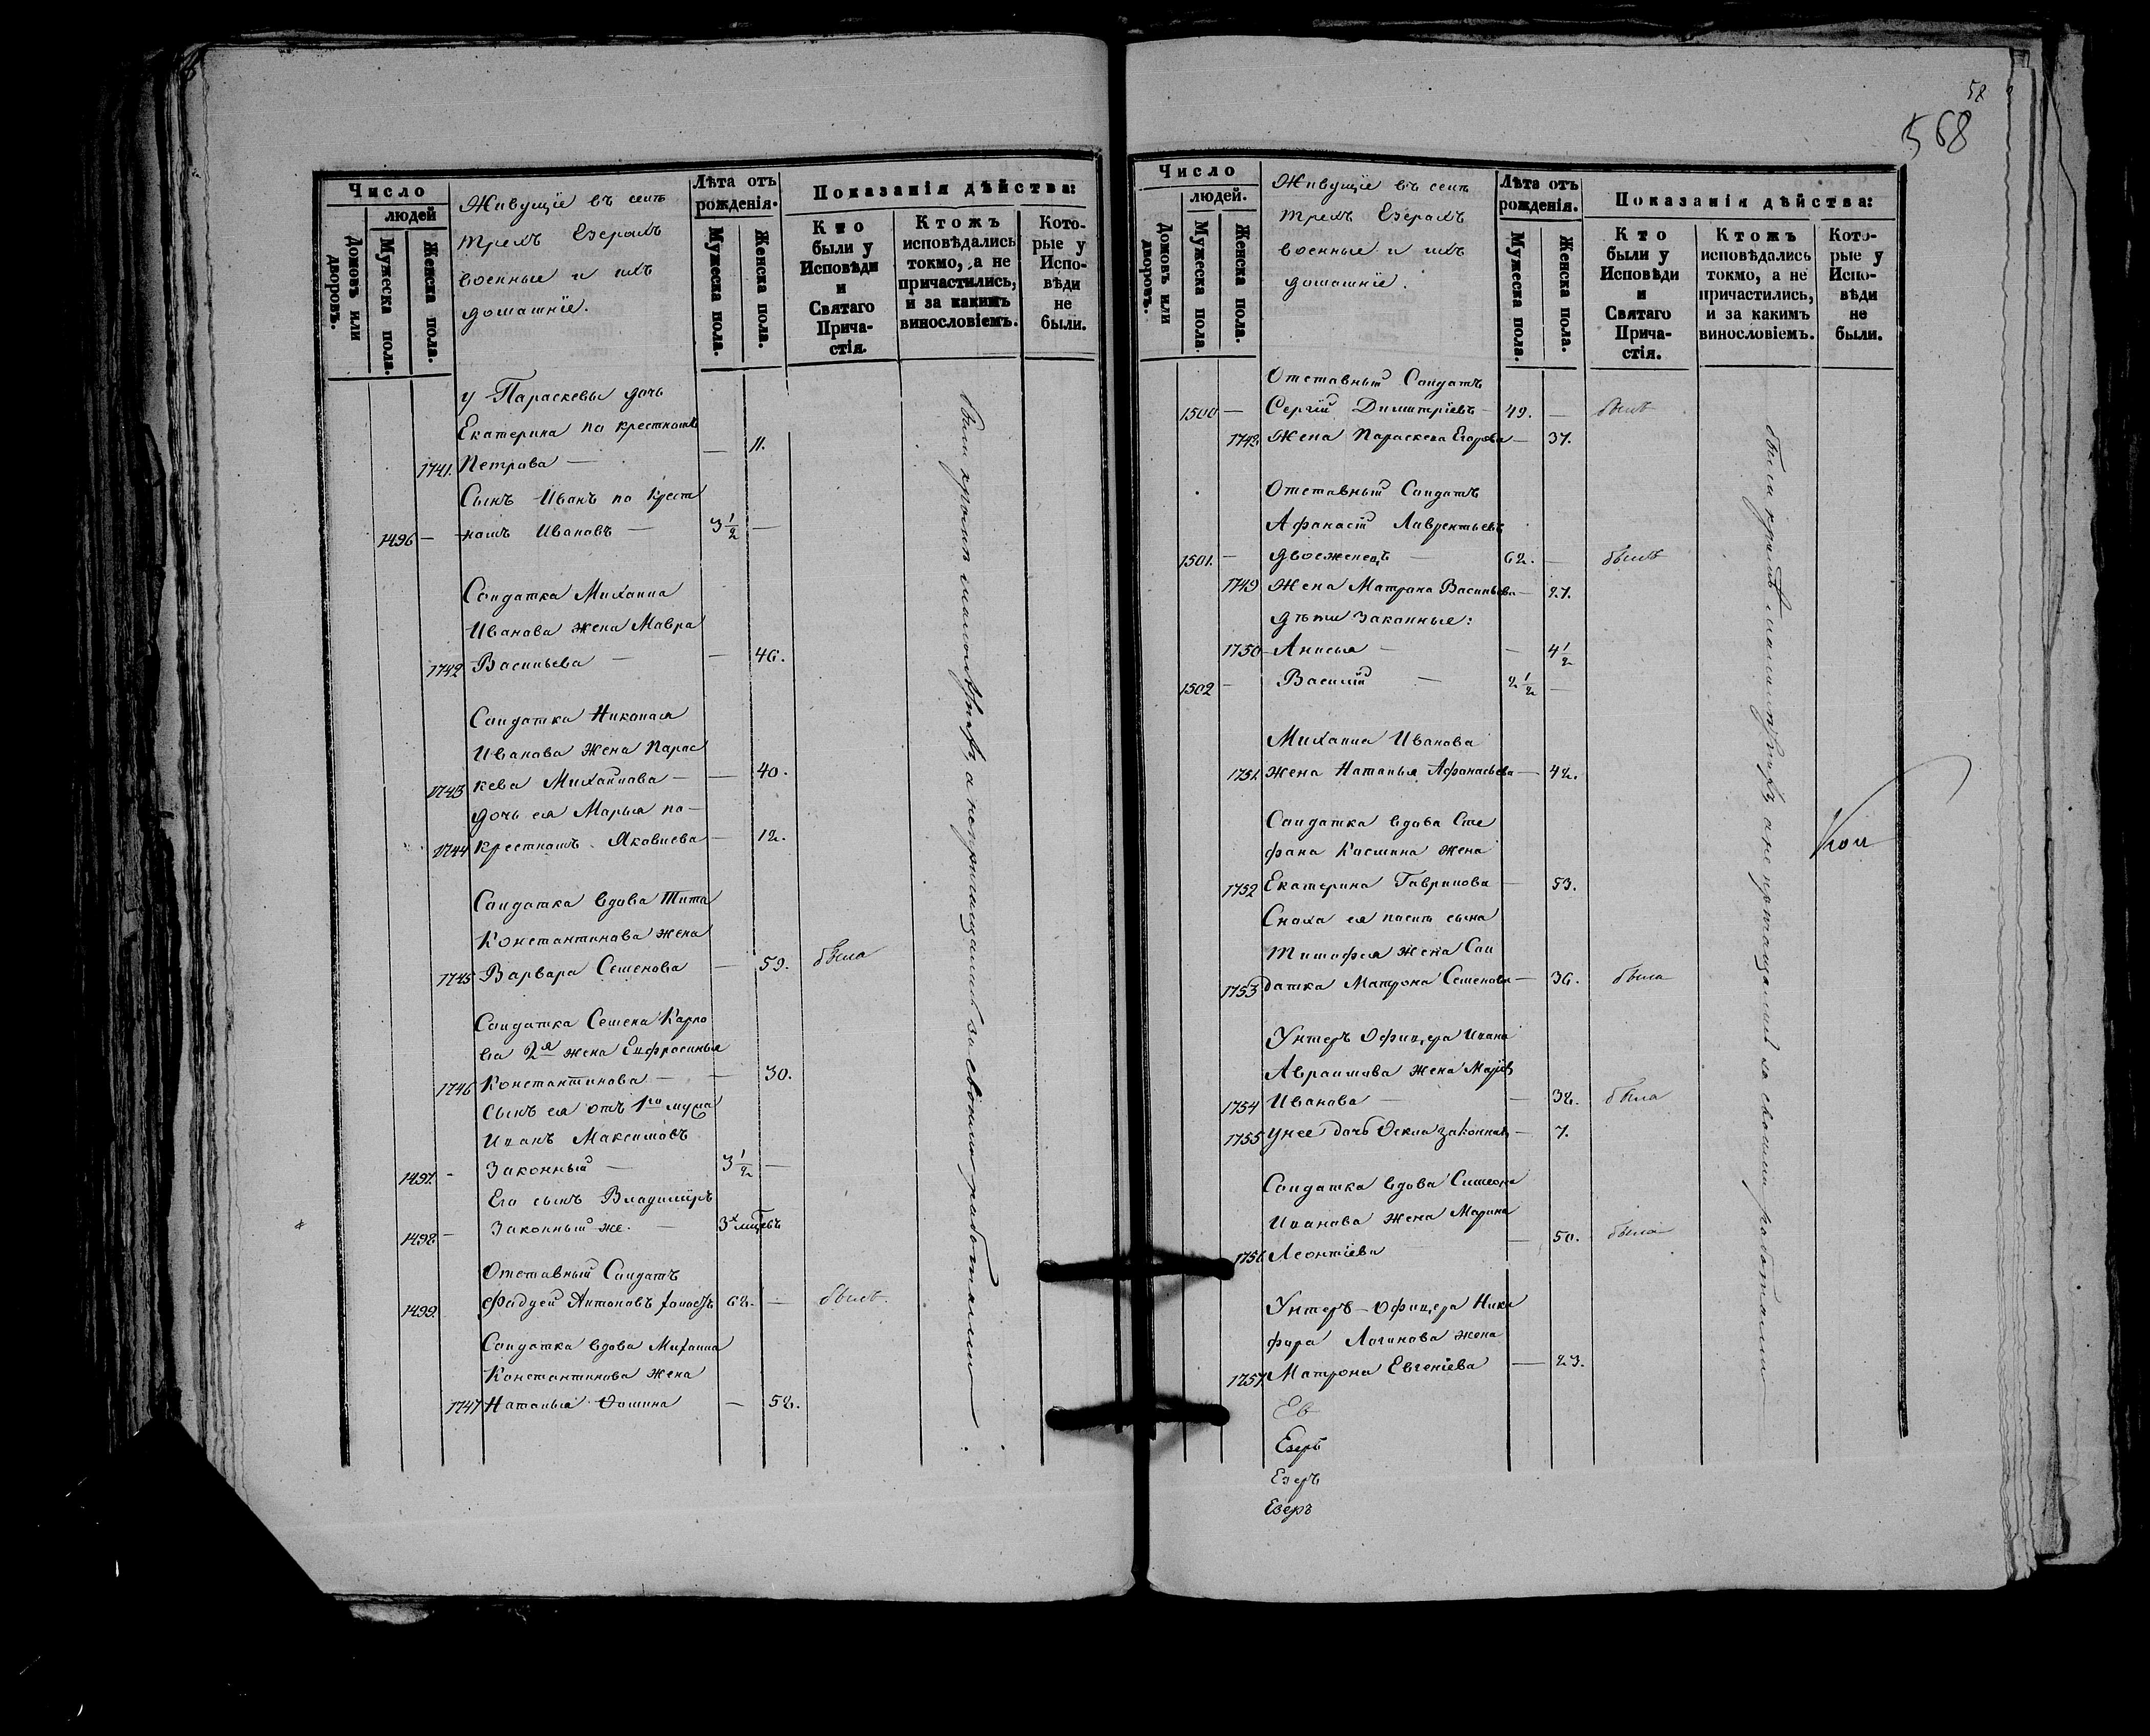 Число
людей
Домовъ или дворовъ.
Мужеска пола.
Женска пола.
Живущіе въ селѣ
трехъ Езерахъ
военные и ихъ
домашніе.
Лѣта отъ
рожденія.
Мужеска пола.
Женска пола.
Показанія дѣйства:
Кто
были у
Исповѣди
и
Святаго
Прича-
стія.
Ктожъ
исповѣдались
токмо, а не
причастились,
и за какимъ
винословіемъ.
Кото-
рые у
Испо-
вѣди
не
были.
у Параскевы дочь
Екатерина по крестномъ
1741. Петрова — — 11.
Сынъ Иванъ по Крест
1496 — номъ Ивановъ — 3 1/2 —
Солдатка Михаила
Иванова жена Мавра
1742 Васильева — — 46.
Солдатка Николая
Иванова Жена Парас
1743 кева Михайлова — — 40.
дочь ея Марья по-
1744 крестномъ Яковлева — 12.
Солдатка вдова Тита
Константинова жена
1745 Варвара Семенова — 59. была
Солдатка Семена Карпо
ва 2я жена Евфросинья
1746 Константинова — — 30.
Сынъ ея отъ 1го мужа
Иванъ Максимовъ
1497. - Законный — 3 1/2 —
Его сынъ Владиміръ
1498 — Законный же. — 3х мцевъ
Отставный Солдатъ
1499. Фадуей Антоновъ холостъ 62. — былъ.
Солдатка вдова Михаила
Константинова жена
1747 Наталья Фомина — 52.
а не пріобщались за своими работами
58
568
Число
людей.
Домовъ или дворовъ.
Мужеска пола.
Женска пола.
Живущіе въ селѣ
трехъ Езерахъ
военные и ихъ
домашніе.
Лѣта отъ
рожденія.
Мужеска пола.
Женска пола.
Показанія дѣйства:
Кто
были у
Исповѣди
и
Святаго
Прича-
стія.
Ктожъ
исповѣдались
токмо, а не
причастились,
и за какимъ
винословіемъ.
Кото-
рые у
Испо-
вѣди
не
были.
Отставный Солдатъ
1500 — Сергій Димитріевъ — 49. — былъ
1748 Жена Параскева Егорова — 37.
Отставный Солдатъ
Афанасій Лаврентьевъ
1501. — двоеженецъ — 62. — былъ
1749 Жена Матрона Васильева — 27.
дѣти законные:
1750 — Анисья — — 4 1/2
1502 — Василій — 2 1/2 —
Михаила Иванова
1751. Жена Наталья Афанасьева — 42.
Солдатка вдова Сте
фана Космина жена
1752 Екатерина Гаврилова — 53.
Сноха ея сына
Тимофея жена Сол
1753 датка Матрона Семенова — 36. была
Унтеръ Офицера Ивана
Авраамова жена
1754 Иванова — — 32. была
1755 у нее дочь Фекла законная — 7.
Солдатка вдова Симеона
Иванова жена Марина
1756 Леонтіева — 50. была
Унтеръ-Офицера Ники
фора Логинова жена
1757 Матрона Евгеніева — 23.
Ев
Езеръ
Езеръ
Езеръ
а не пріобщались за своими работами